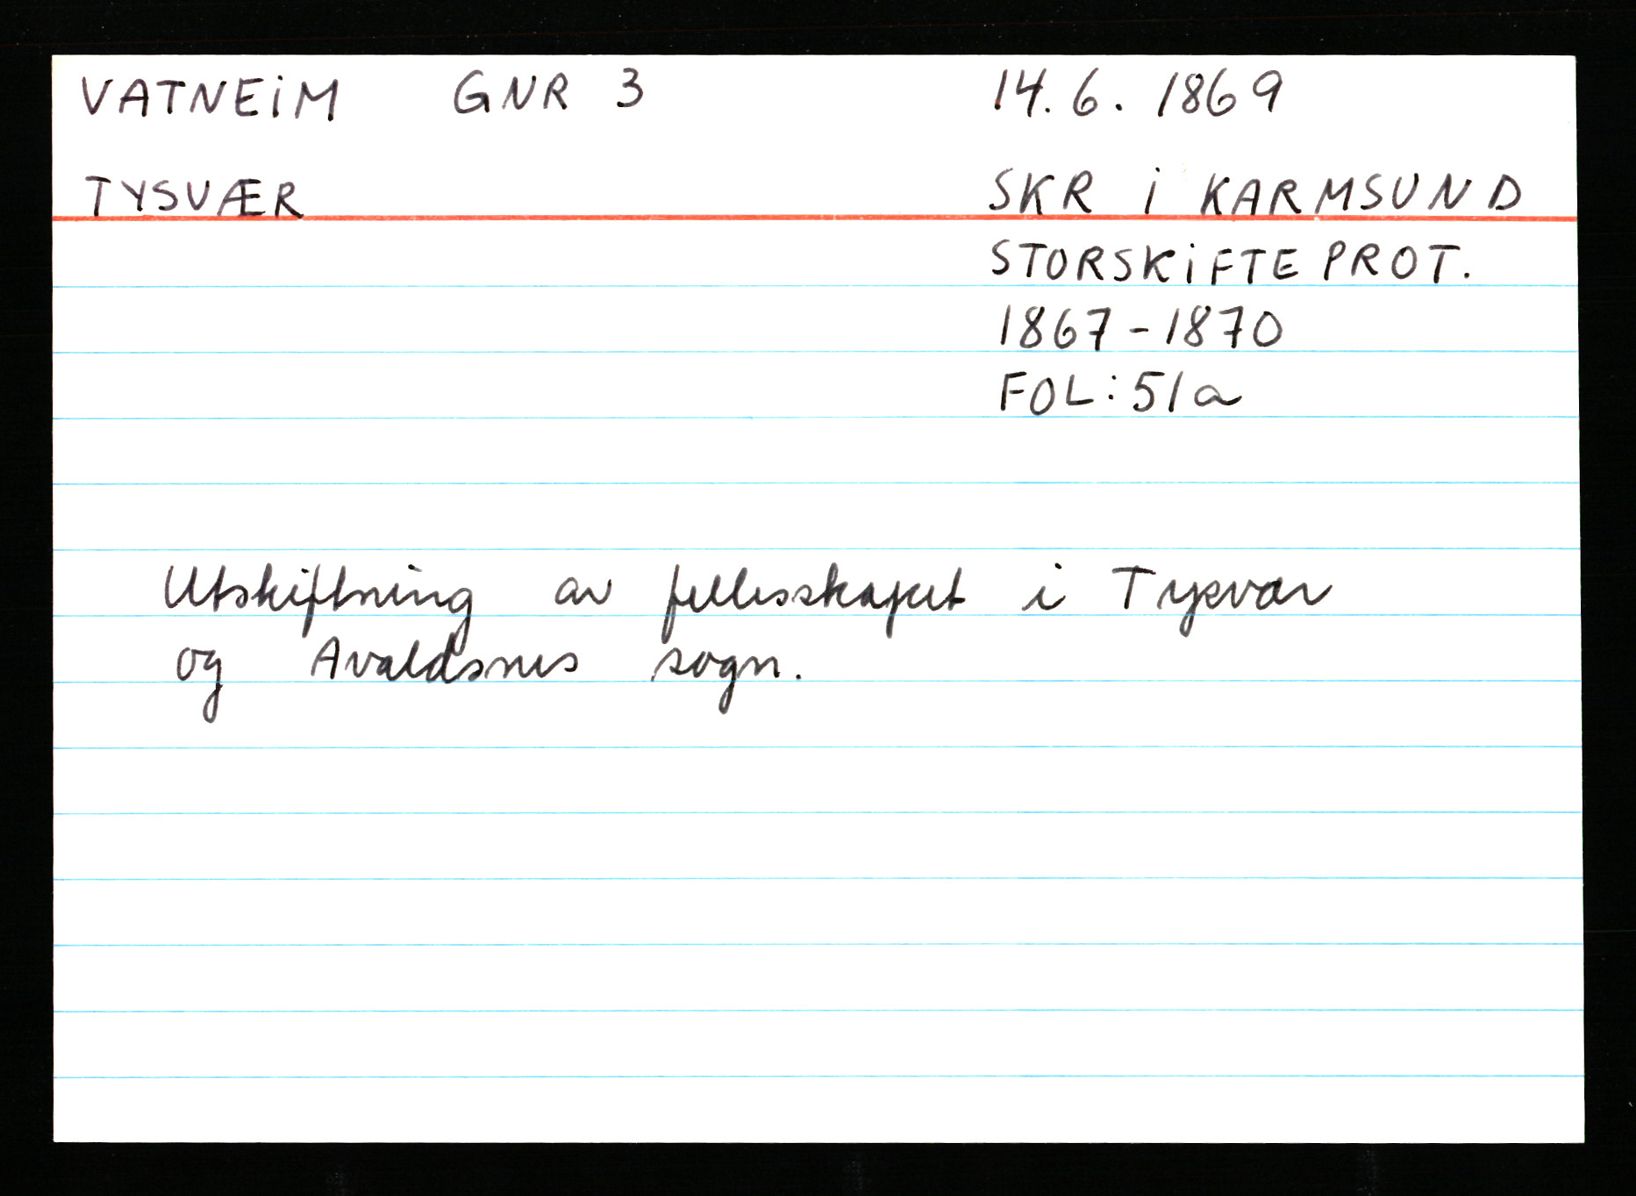 VATNEIM GNR 3 14.6.1869
TYSVÆR SKR I KARMSUND
STORSKIFTE PROT.
1867-1870
FOL: 51a
Utskiftning av fellesskapet i Tysvær
og Avaldsnes sogn.